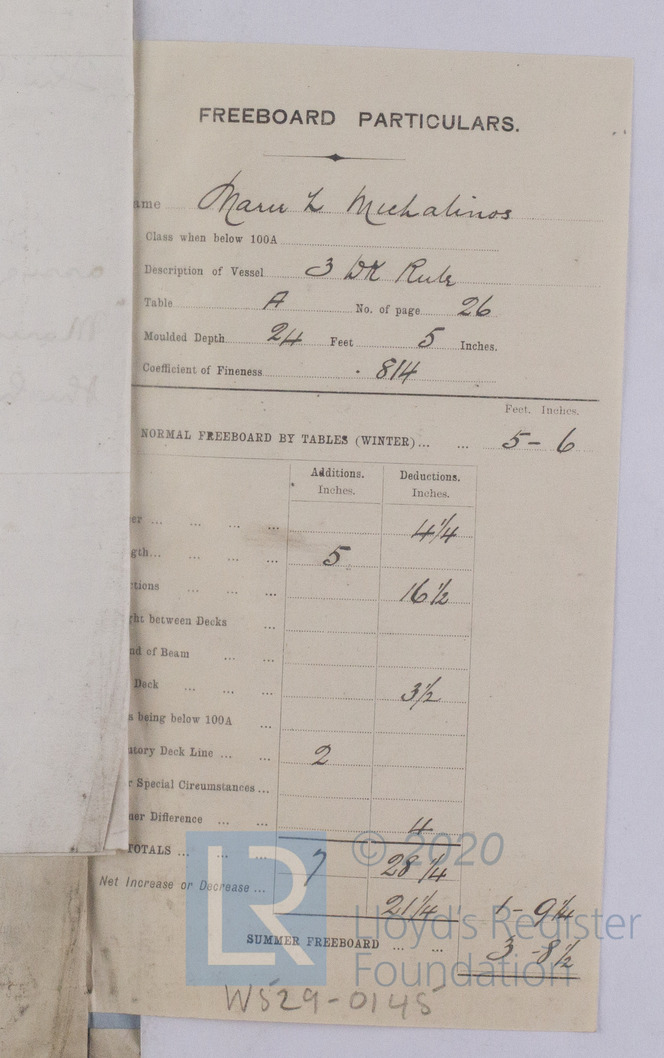 FREEBOARD PARTICULARS.
ame Marie L Michalinos
Class when below 100A
Description of Vessel 3 DK Rule
Table A No. of page 26
Moulded Depth 24 Feet 5 Inches.
Coefficient of Fineness .814
Feet. Inches.
NORMAL FREEBOARD BY TABLES (WINTER)... ... 5-6
Additions. Deductions.
Inches. Inches.
er ... ... ... ... 4 1/4
gth... ... ... ... 5
ctions ... ... ... 16 1/2
ght between Decks ...
nd of Beam ... ...
Deck ... ... ... 3 1/2
s being below 100A ...
utory Deck Line ... ... 2
r Special Circumstances ...
mer Difference ... ... 4
TOTALS ... ... ... 7 28 1/4
Net Increase or Decrease ... 21 1/4 1-9 1/4
SUMMER FREEBOARD ... ... 3-8 1/2
WS29-0145
LR
© 2020
Lloyd's Register
Foundation